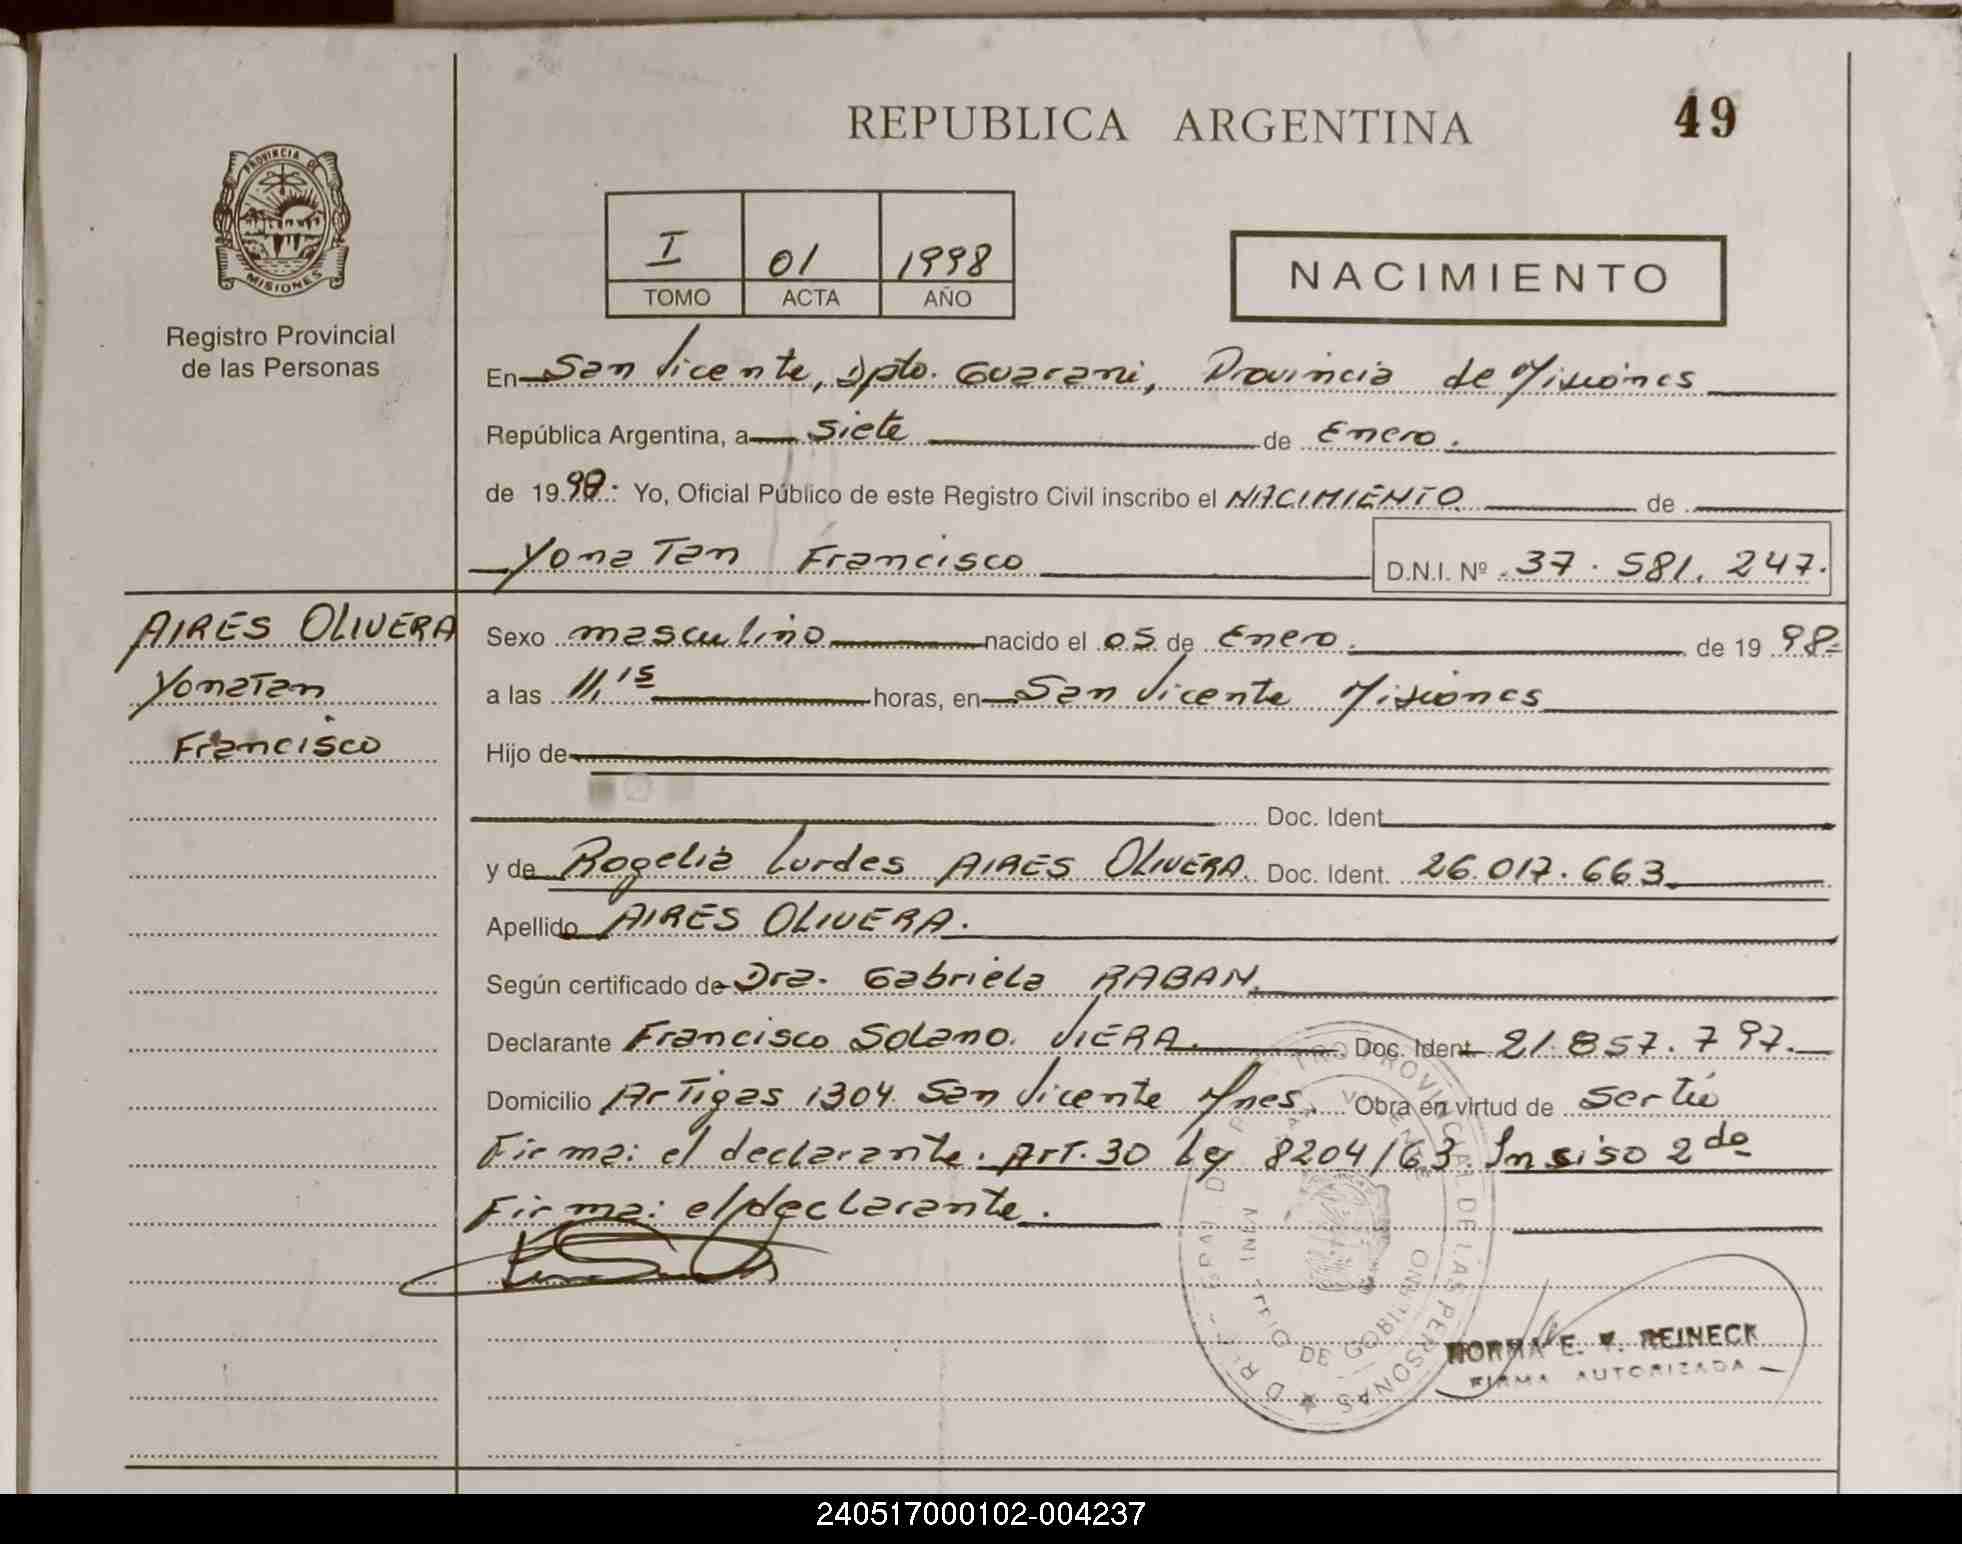 REPUBLICA ARGENTINA
49
PROVINCIA DE
MISIONES
Registro Provincial
de las Personas
I 01 1998
TOMO ACTA AÑO
NACIMIENTO
En San Vicente, Dpto. Guarani, Provincia de Misiones
República Argentina, a siete de Enero.
de 1998. Yo, Oficial Público de este Registro Civil inscribo el NACIMIENTO de
Yonatan Francisco D.N.I. Nº 37.581.247.
AIRES OLIVERA
Yonatan
Francisco
Sexo masculino nacido el 05 de Enero. de 19 98
a las 11,15 horas, en San Vicente Misiones
Hijo de
Doc. Ident.
y de Rogelia Lurdes AIRES OLIVERA. Doc. Ident. 26.017.663.
Apellido AIRES OLIVERA.
Según certificado de Dra. Gabriela RABAN.
Declarante Francisco Solano. VIERA. Doc. Ident. 21.857.797.
Domicilio Artigas 1304 San Vicente Mnes. Obra en virtud de
Firma: el declarante. Art. 30 Ley 8204/63. Insiso 2do
Firma: el declarante.
PROVINCIAL DE LAS PERSONAS
DE GOBIERNO
NORMA E. V. REINECK
FIRMA AUTORIZADA
240517000102-004237